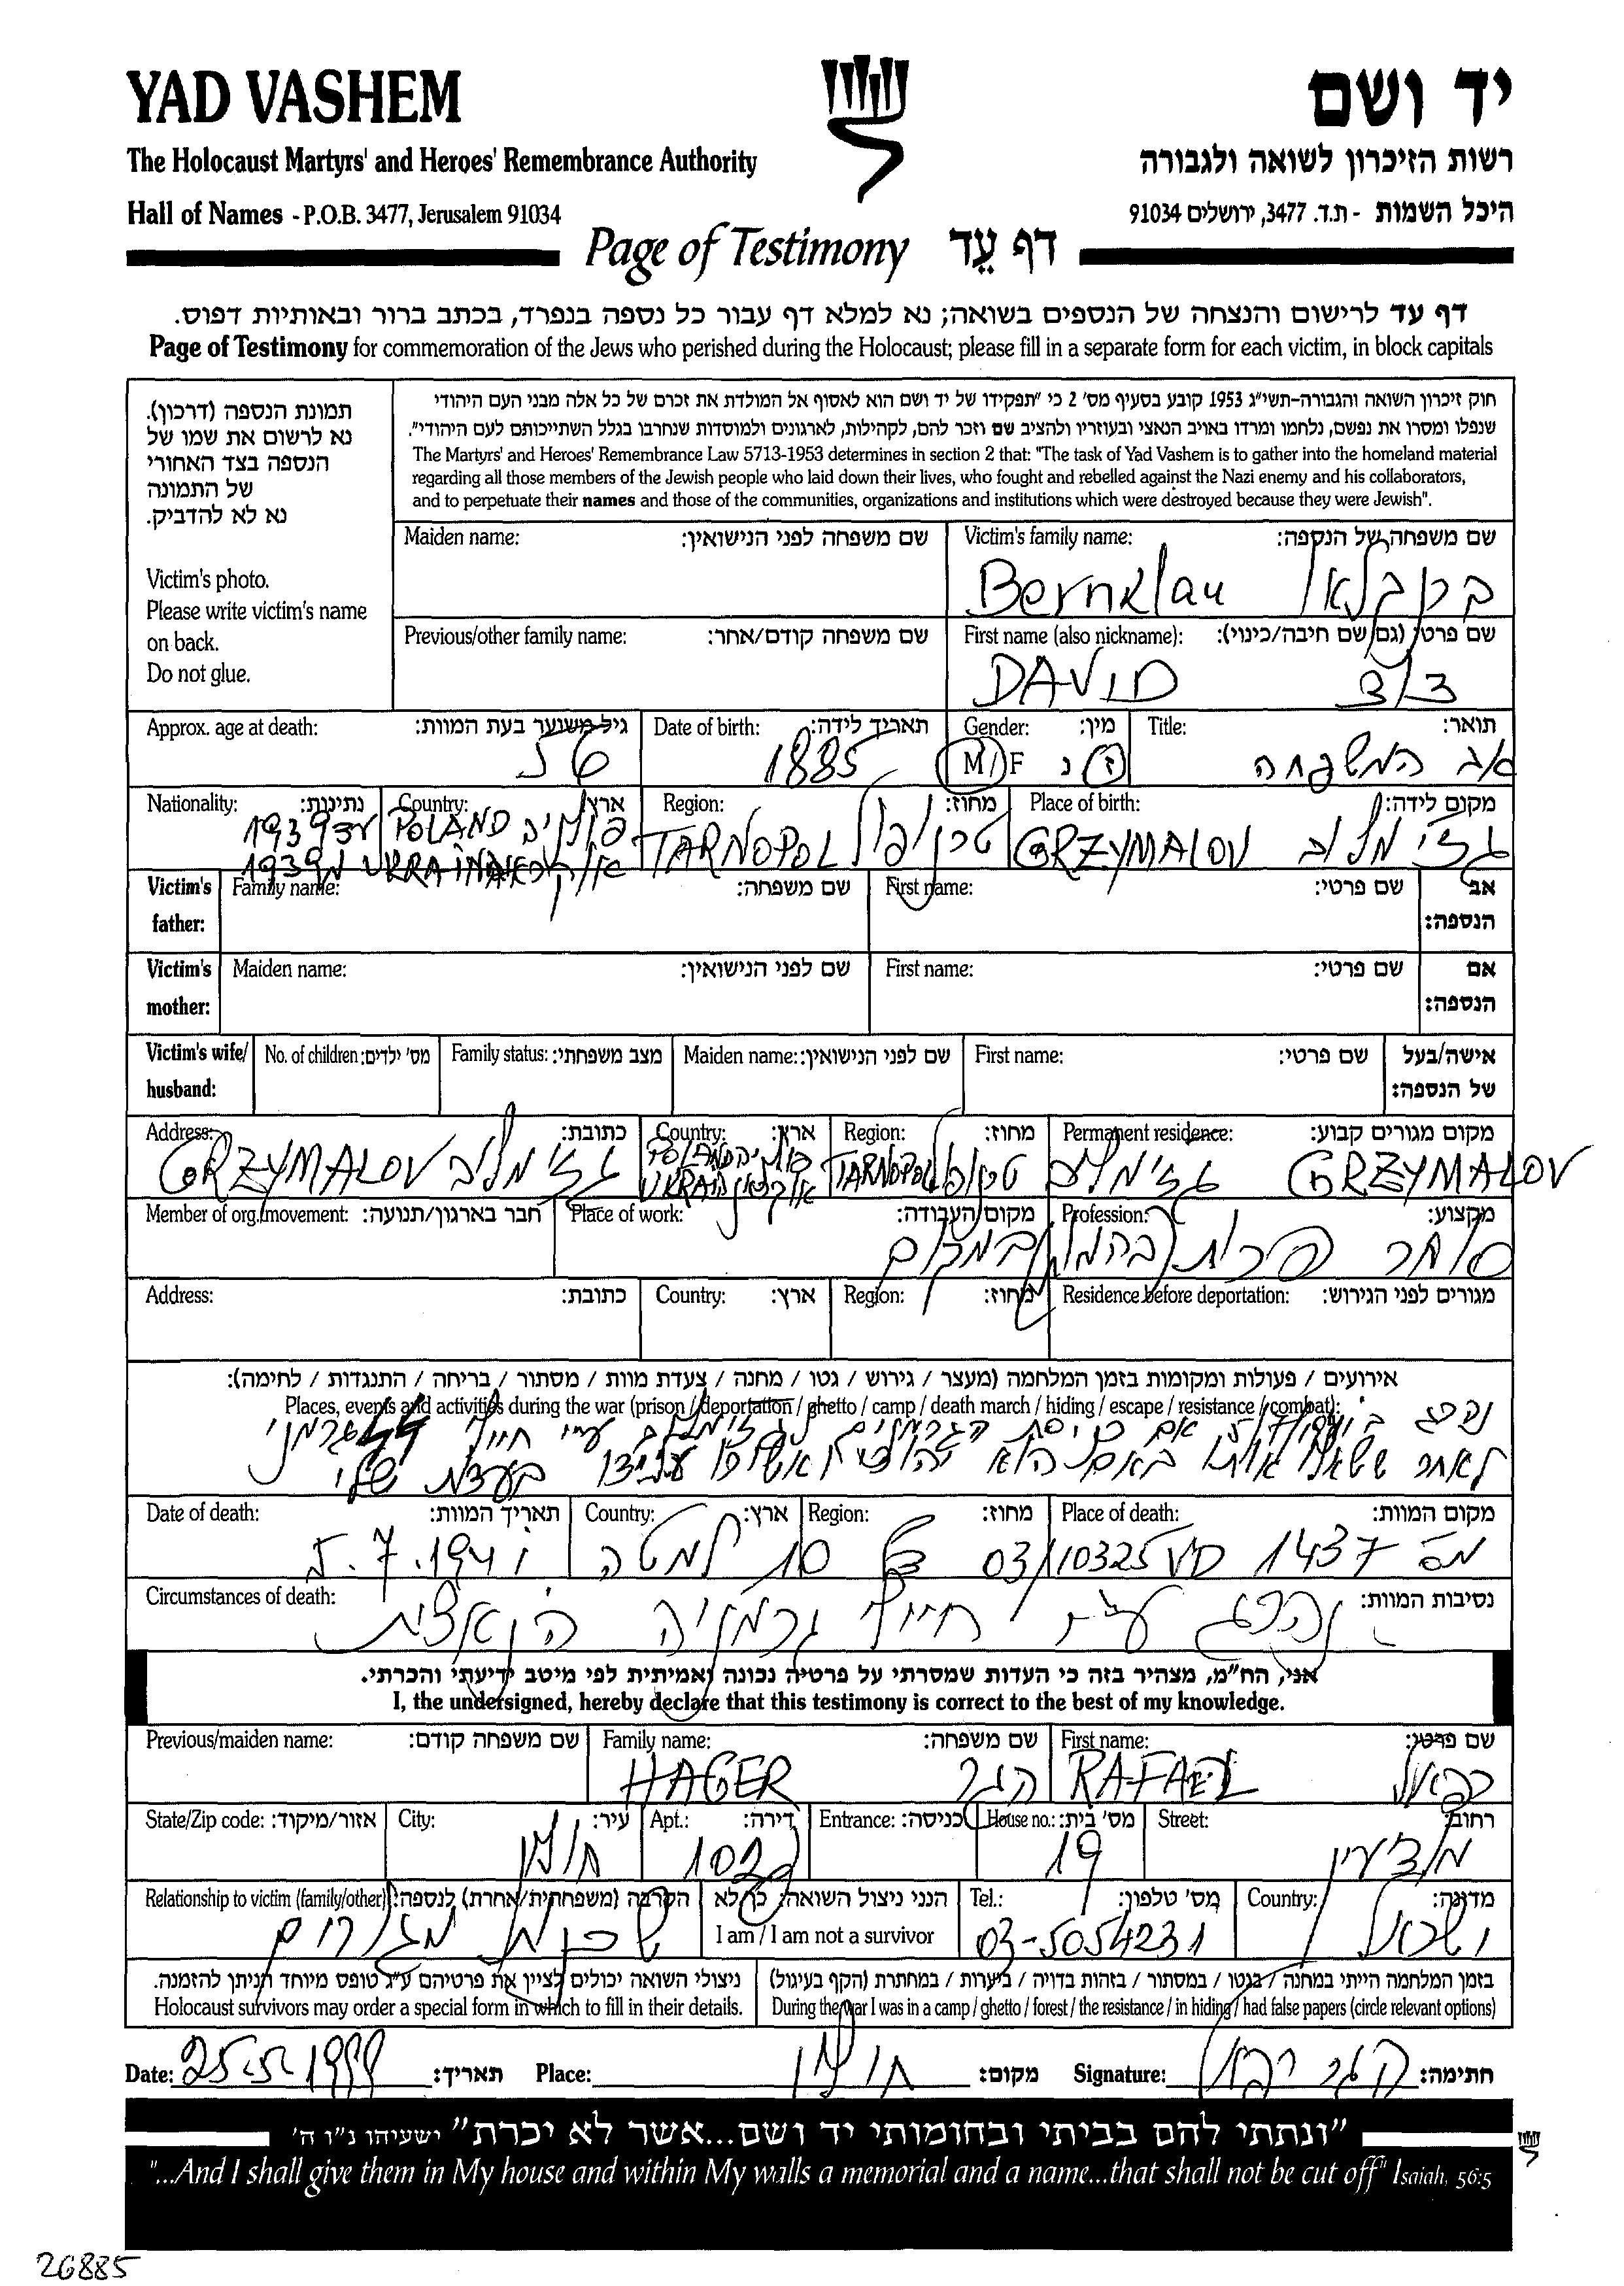 YAD VASHEM
יד ושם
The Holocaust Martyrs' and Heroes' Remembrance Authority
רשות הזיכרון לשואה ולגבורה
Hall of Names - P.O.B. 3477, Jerusalem 91034
היכל השמות - ת.ד. 3477, ירושלים 91034
Page of Testimony דף עֵד
דף עד לרישום והנצחה של הנספים בשואה; נא למלא דף עבור כל נספה בנפרד, בכתב ברור ובאותיות דפוס.
Page of Testimony for commemoration of the Jews who perished during the Holocaust; please fill in a separate form for each victim, in block capitals
תמונת הנספה (דרכון).
נא לרשום את שמו של
הנספה בצד האחורי
של התמונה
נא לא להדביק.
Victim's photo.
Please write victim's name
on back.
Do not glue.
חוק זיכרון השואה והגבורה-תשי״ג 1953 קובע בסעיף מס׳ 2 כי ״תפקידו של יד ושם הוא לאסוף אל המולדת את זכרם של כל אלה מבני העם היהודי
שנפלו ומסרו את נפשם, נלחמו ומרדו באויב הנאצי ובעוזריו ולהציב שם וזכר להם, לקהילות, לארגונים ולמוסדות שנחרבו בגלל השתייכותם לעם היהודי״.
The Martyrs' and Heroes' Remembrance Law 5713-1953 determines in section 2 that: "The task of Yad Vashem is to gather into the homeland material
regarding all those members of the Jewish people who laid down their lives, who fought and rebelled against the Nazi enemy and his collaborators,
and to perpetuate their names and those of the communities, organizations and institutions which were destroyed because they were Jewish".
Maiden name: שם משפחה לפני הנישואין:
Victim's family name: שם משפחה של הנספה:
Bernklau ברנקלאו
Previous/other family name: שם משפחה קודם/אחר:
First name (also nickname): שם פרטי (גם שם חיבה/כינוי):
DAVID דוד
Approx. age at death: גיל משוער בעת המוות:
56
Date of birth: תאריך לידה:
1885
Gender: מין:
M/F ז נ
Title: תואר:
אב המשפחה
Nationality: נתינות:
עד 1939
מ 1939
Country: ארץ:
POLAND פולניה
UKRAINA אוקראינה
Region: מחוז:
TARNOPOL טרנופול
Place of birth: מקום לידה:
GRZYMALOV גזימלוב
Victim's father: Family name: שם משפחה: First name: שם פרטי: אב הנספה:
Victim's mother: Maiden name: שם לפני הנישואין: First name: שם פרטי: אם הנספה:
Victim's wife/ husband: No. of children: מס׳ ילדים: Family status: מצב משפחתי: Maiden name: שם לפני הנישואין: First name: שם פרטי: אישה/בעל של הנספה:
Address: כתובת: Country: ארץ: Region: מחוז: Permanent residence: מקום מגורים קבוע:
GRZYMALOV גזימלוב POLAND פולניה UKRAINA TARNOPOL טרנופול גזימלוב GRZYMALOV
Member of org./movement: חבר בארגון/תנועה: Place of work: מקום העבודה: Profession: מקצוע:
סוחר פרות במקום
Address: כתובת: Country: ארץ: Region: מחוז: Residence before deportation: מגורים לפני הגירוש:
אירועים / פעולות ומקומות בזמן המלחמה (מעצר / גירוש / גטו / מחנה / צעדת מוות / מסתור / בריחה / התנגדות / לחימה):
Places, events and activities during the war (prison / deportation / ghetto / camp / death march / hiding / escape / resistance / combat):
נהרג הגרמנים ע״י חייל גרמני
לאחר ששאלו אותו באם הוא יהודי
Date of death: תאריך המוות: Country: ארץ: Region: מחוז: Place of death: מקום המוות:
5.7.1941 10 למטה 03/10325 1437
Circumstances of death: נסיבות המוות:
נהרג ע״י חייל גרמניה הנאצית
אני, הח״מ, מצהיר בזה כי העדות שמסרתי על פרטיה נכונה ואמיתית לפי מיטב ידיעתי והכרתי.
I, the undersigned, hereby declare that this testimony is correct to the best of my knowledge.
Previous/maiden name: שם משפחה קודם: Family name: שם משפחה: First name: שם פרטי:
HAGER הגר RAFAEL רפאל
State/Zip code: אזור/מיקוד: City: עיר: Apt.: דירה: Entrance: כניסה: House no.: מס׳ בית: Street: רחוב:
חולון 102 19 מודיעין
Relationship to victim (family/other): הקרבה (משפחתית/אחרת) לנספה: הנני ניצול השואה: כן/לא
I am / I am not a survivor
Tel.: מס׳ טלפון: Country: מדינה:
שכנות מגורים 03-5054231 ישראל
ניצולי השואה יכולים לציין את פרטיהם ע״ג טופס מיוחד הניתן להזמנה.
Holocaust survivors may order a special form in which to fill in their details.
בזמן המלחמה הייתי במחנה / בגטו / במסתור / בזהות בדויה / ביערות / במחתרת (הקף בעיגול)
During the war I was in a camp / ghetto / forest / the resistance / in hiding / had false papers (circle relevant options)
Date: 25-5-1999 תאריך: Place: חולון מקום: Signature: הגר רפאל חתימה:
״ונתתי להם בביתי ובחומותי יד ושם...אשר לא יכרת״ ישעיהו נ״ו ה׳
"...And I shall give them in My house and within My walls a memorial and a name...that shall not be cut off" Isaiah, 56:5
26885